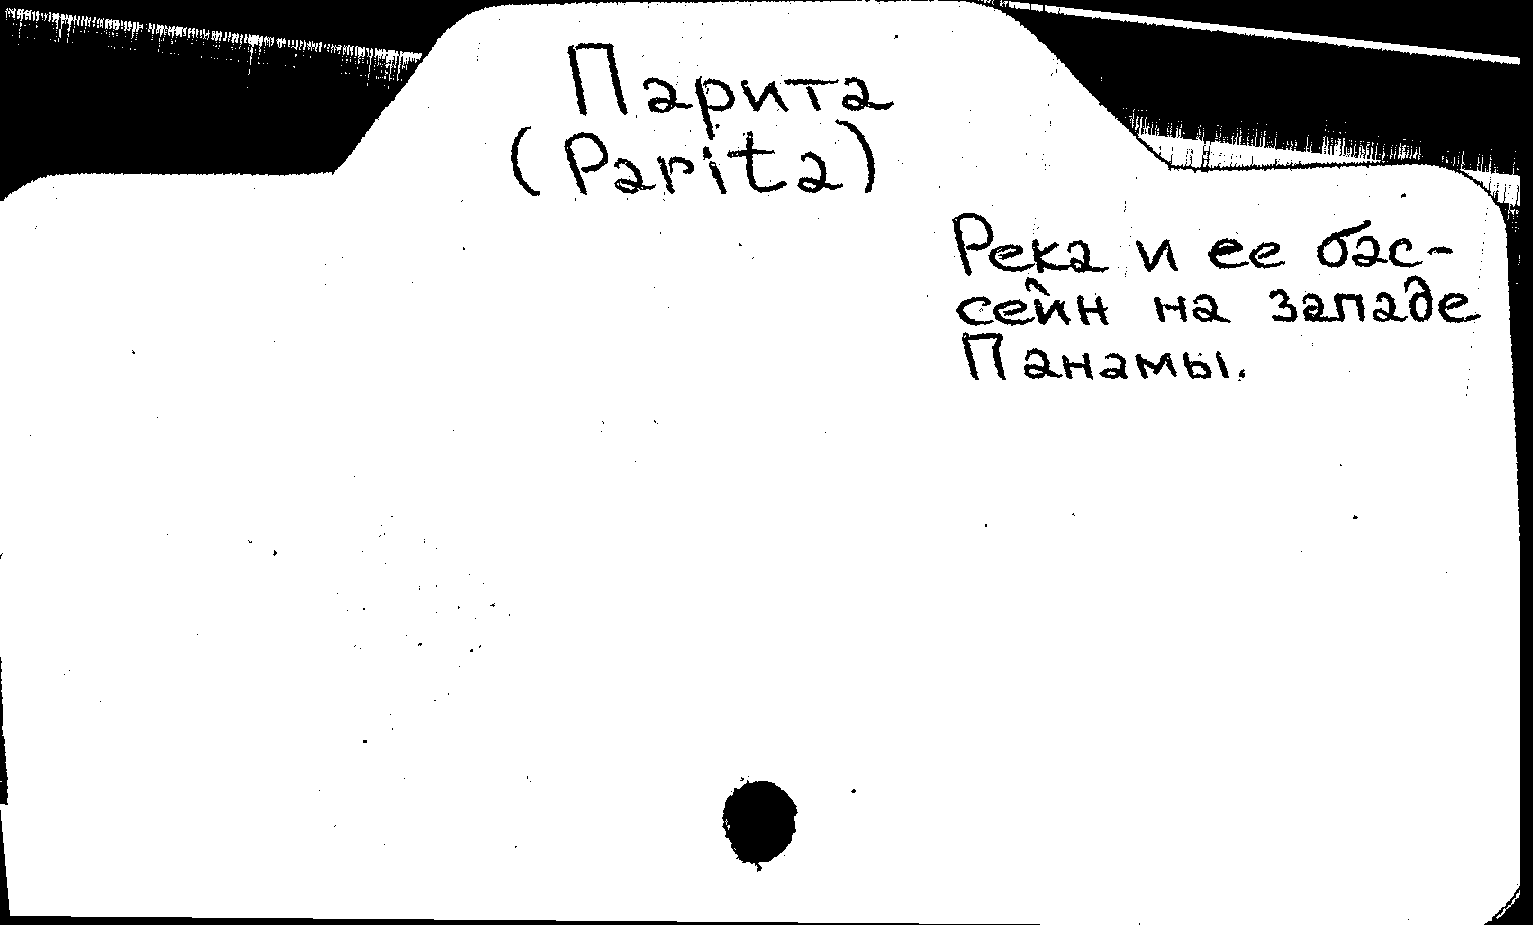 Парита
(Parita)
Река и ее бас-
сейн на западе
Панамы.